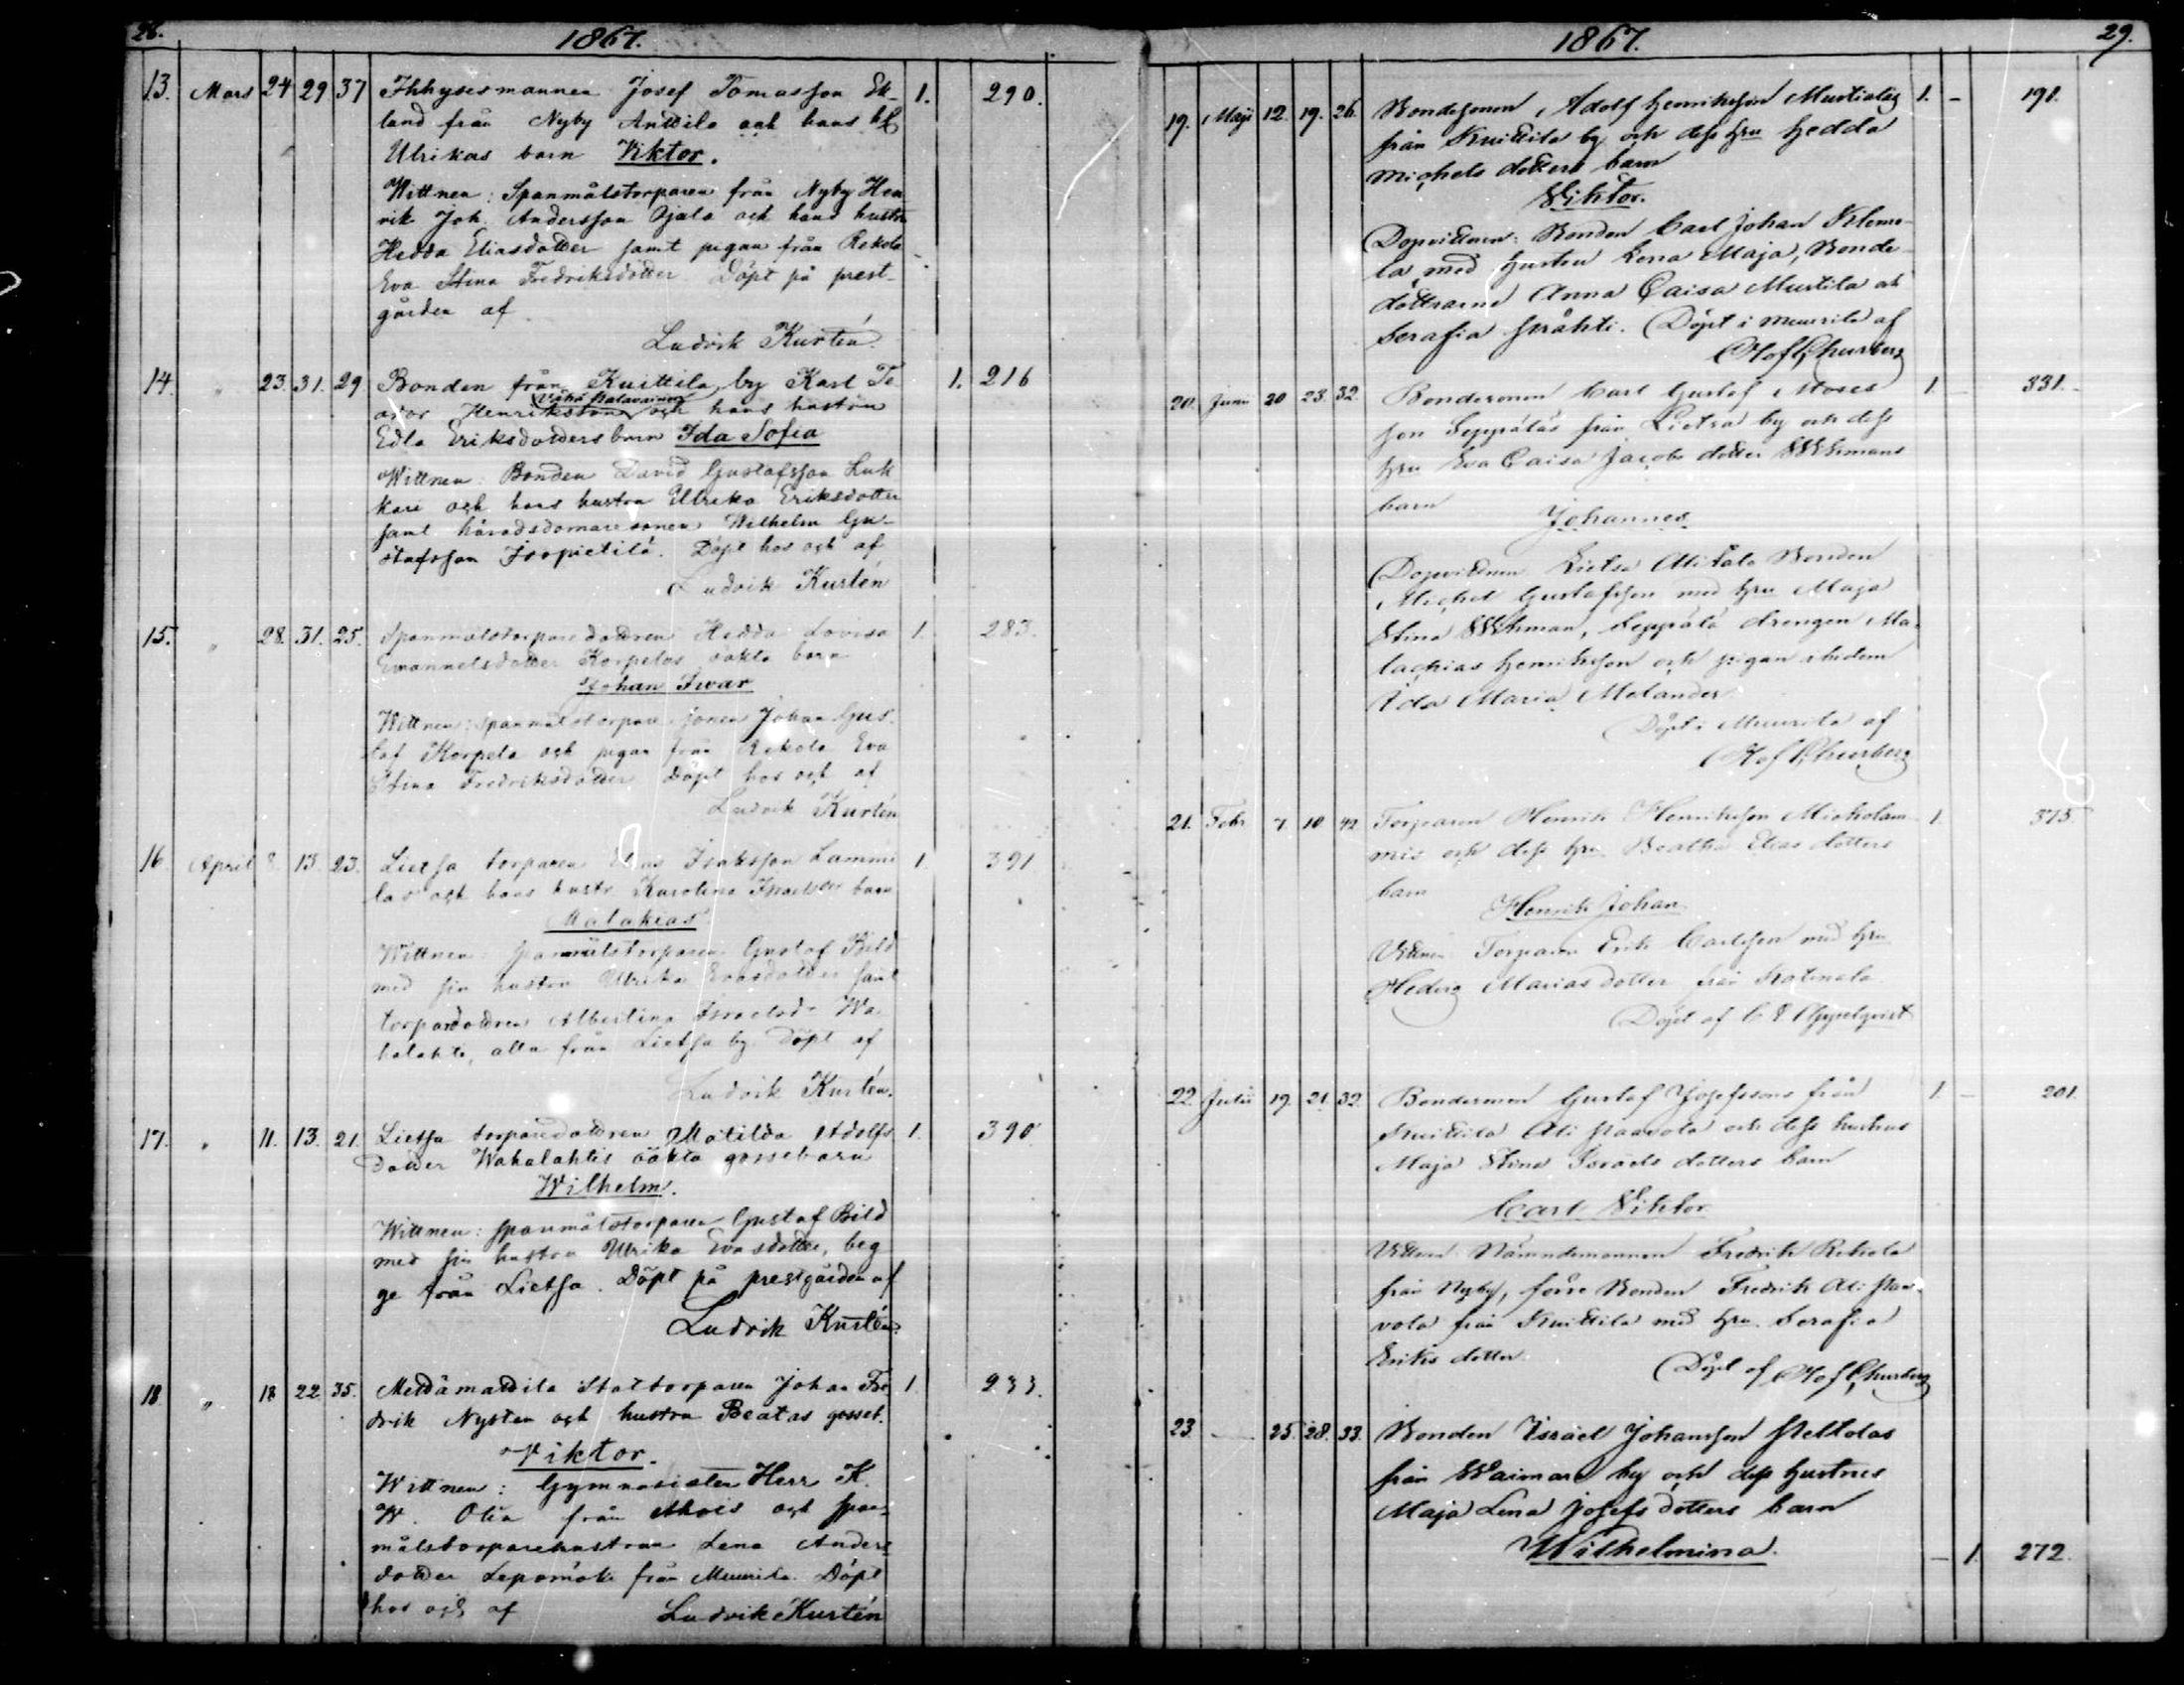 26. 1867.
13. Mars 24 29 37 Ihhysesmannen Josef Tomasson Ek- 1. 290.
land från Nyby Anttila och hans h
Ulrikas barn Viktor.
Wittnen: Spanmålstorparen från Nyby Hen
rik Joh. Andersson Ojala och hans hustru
Hedda Eliasdotter samt pigan från Rekola
Eva Stina Fredriksdotter Döpt på prest-
gården af
Ludvik Kurtén.
14. " 23. 31. 29 Bonden från Kuittila by Karl Te 1. 216
odor Henriksson och hans hustru
Edla Eriksdotters barn Ida Sofia
Wittnen: Bonden David Gustafsson Luk
kari och hans hustru Ulrika Eriksdotter
samt häradsdomaresonen Wilhelm Gu-
stafsson Isopietilä. Döpt hos och af
Ludvik Kurtén
15. " 28. 31. 25. Spanmålstorparedottren Hedda Lovisa 1. 283.
Emanuelsdotter Korpelas oäkta barn
Johan Iwar
Wittnen: Spanmålstorpare sonen Johan Gus-
taf Korpela och pigan från Rekola Eva
Stina Fredriksdotter Döpt hos och af
Ludvik Kurtén
16 April 8. 13. 23. Lietsa torparen Isaksson Lammi 1. 391
las och hans hustr. Karolina barn
Malakias
Wittnen: spanmålstorparen Gustaf Bild
med sin hustru Ulrika Evasdotter samt
torparedottren Albertina Israelsd. Wa
halahti, alla från Lietsa by Döpt af
Ludvik Kurtén.
17. " 11. 13. 21. Lietsa torparedottren Matilda Adolfs 1. 390
dotter Wahalahtis oäkta gossebarn
Wilhelm.
Wittnen: spanmålstorparen Gustaf Bild
med sin hustru Ulrika Evasdotter, beg
ge från Lietsa. Döpt på prestgården af
Ludvik Kurtén.
18 " 18 22 35. Mettämattila Stattorparen Johan Fre 1. 233.
drik Nysten och hustru Beatas gosseb.
Viktor.
Wittnen: Gymnasisten Herr K.
W. från och span-
målstorparehustrun Lena Anders-
dotter från Muurila. Döpt
hos och af Ludvik Kurtén
1867. 29.
19. Maji 12. 19. 26. Bondesonen Adolf Henriksson 1. - 191.
från Kuittila by och dess hru Hedda
Michels dotters barn
Viktor.
Dopvittnen: Bonden Carl Johan Kleme-
lä med hustru Lena Maja, Bonde-
döttrarne Anna Caisa Mustila och
Serafia. Döpt i Muurila af
Olof Churberg
20. Juni 20 23. 32. Bondesonen Carl Gustaf Moses 1. - 331.
son Seppäläs från Lietsa by och dess
hru Eva Caisa Jacobs dotter Wihmans
barn
Johannes
Dopvittnen Lietsa Alitalo Bonden
Michel Gustafsson med hru Maja
Stina Wihman, Seppälä drengen Ma-
lachias Henriksson och pigan ibidem
Ida Maria Molander.
Döpt i Muurila af
Olof Churberg
21. Febr 7 10 42 Torparen Henrik Henriksson 1. 375.
och dess hru Beatha Elias dotters
barn
Henrik Johan
Vittnen Torparen Erik Carlsson med hru
Hedvig Marias dotter från
Döpt af C E Appelqvist
22. Julii 19. 21. 32. Bondesonen Gustaf Josefssons från 1. - 201.
Kuittila Ali Paavola och dess hustrus
Maja Stina Israels dotters barn
Carl Viktor
Vittnen Nämndemannen Fredrik Rekola
från Nyby, förre Bonden Fredrik Ali Paa-
vola från Kuittila med hru Serafia
Eriks dotter.
Döpt af Olof Churberg
23. 25. 28. 33. Bonden Israel Johansson Peltolas
från Waimare by och dess hustrus
Maja Lena Josefs dotters barn
Wilhelmina. - 1. 272.